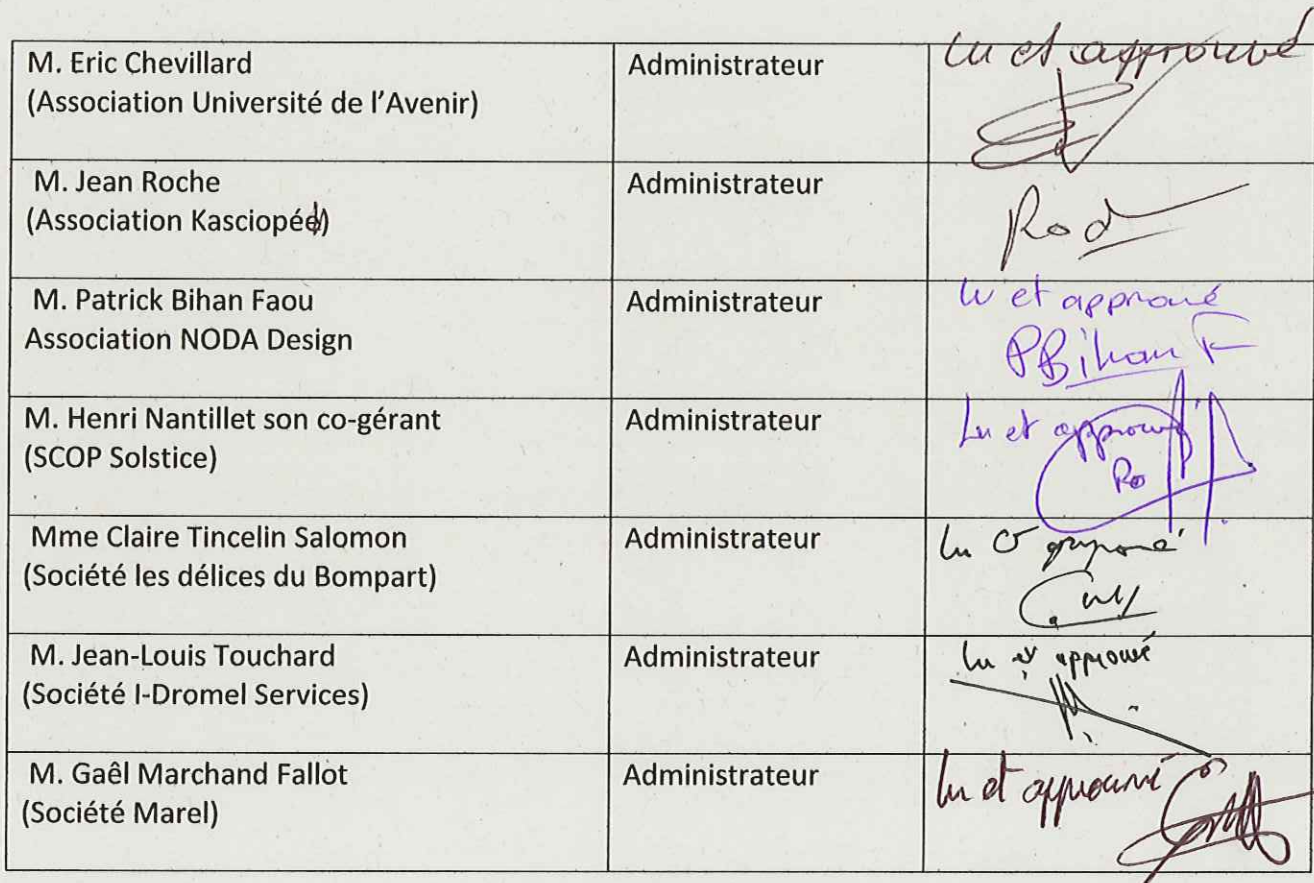 M. Eric Chevillard
(Association Université de l'Avenir)
Administrateur
Lu et approuvé
M. Jean Roche
(Association Kasciopée)
Administrateur
M. Patrick Bihan Faou
Association NODA Design
Administrateur
lu et approuvé
PBihan F
M. Henri Nantillet son co-gérant
(SCOP Solstice)
Administrateur
Lu et approuvé
Po
Mme Claire Tincelin Salomon
(Société les délices du Bompart)
Administrateur
lu et approuvé
M. Jean-Louis Touchard
(Société I-Dromel Services)
Administrateur
lu et approuvé
M. Gaêl Marchand Fallot
(Société Marel)
Administrateur
lu et approuvé